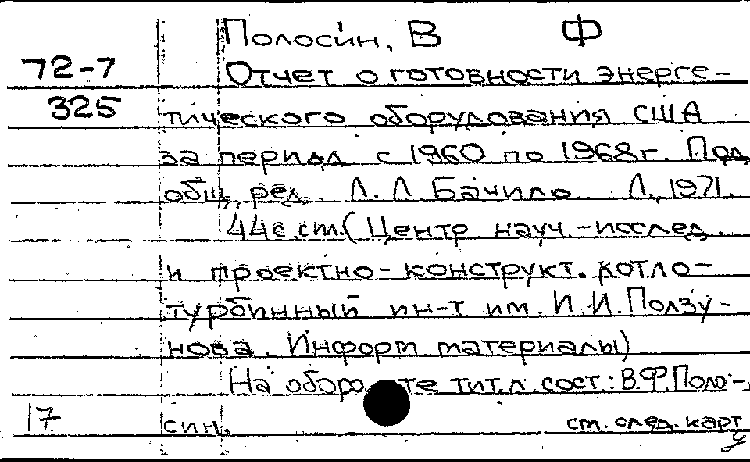 Полосин, В Ф
72-7 Отчет о готовности энерге-
325 тического оборудования США
за период с 1960 по 1968 г. Под
общ. ред. Л. Л. Бачило Л, 1971.
44 с. ст. (Центр науч.-исслед.
и проектно-конструкт. котло-
турбинный ин-т им. И. И. Ползу-
нова. Информ материалы)
На оборо те тит. л. сост.: В. Ф. Поло-
17 син. см. след. карт